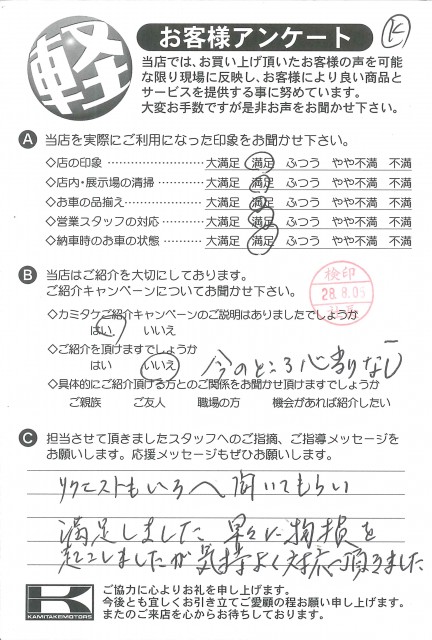 軽
お客様アンケート
K
当店では、お買い上げ頂いたお客様の声を可能
な限り現場に反映し、お客様により良い商品と
サービスを提供する事に努めています。
大変お手数ですが是非お声をお聞かせ下さい。
A 当店を実際にご利用になった印象をお聞かせ下さい。
◇店の印象 …………………… 大満足 満足 ふつう やや不満 不満
◇店内・展示場の清掃 ………… 大満足 満足 ふつう やや不満 不満
◇お車の品揃え ……………… 大満足 満足 ふつう やや不満 不満
◇営業スタッフの対応 ………… 大満足 満足 ふつう やや不満 不満
◇納車時のお車の状態 ………… 大満足 満足 ふつう やや不満 不満
B 当店はご紹介を大切にしております。
ご紹介キャンペーンについてお聞かせ下さい。
検印
28.8.05
◇カミタケご紹介キャンペーンのご説明はありましたでしょうか
はい いいえ
◇ご紹介を頂けますでしょうか
はい いいえ 今のところ心当りなし
◇具体的にご紹介頂ける方とのご関係をお聞かせ頂けますでしょうか
ご親族 ご友人 職場の方 機会があれば紹介したい
C 担当させて頂きましたスタッフへのご指摘、ご指導メッセージを
お願いします。応援メッセージもぜひお願いします。
リクエストもいろへ聞いてもらい
満足しました 早々に物損を
起こしましたが気持よく対応頂きました
K
KAMITAKEMOTORS
ご協力に心よりお礼を申し上げます。
今後とも宜しくお引き立てご愛顧の程お願い申し上げます。
またのご来店を心からお待ちしております。